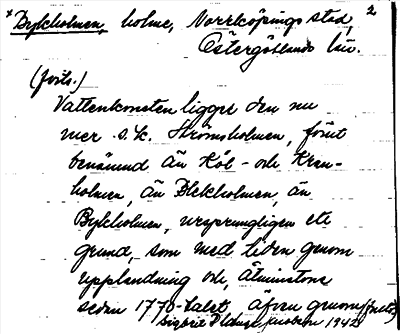 * Bykholmen, holme, Norrköpings stad, 2
Östergötlands län.
(forts.)
Vattenkonsten ligger den nu
mer s.k. Strömsholmen, förut
benämnd än Kål- och Kran-
holmen, än Blekholmen, än
Bykholmen, ursprungligen ett
grund, som med tiden genom
uppländning och, åtminstone
sedan 1770-talet, äfven genom (forts.)
1942